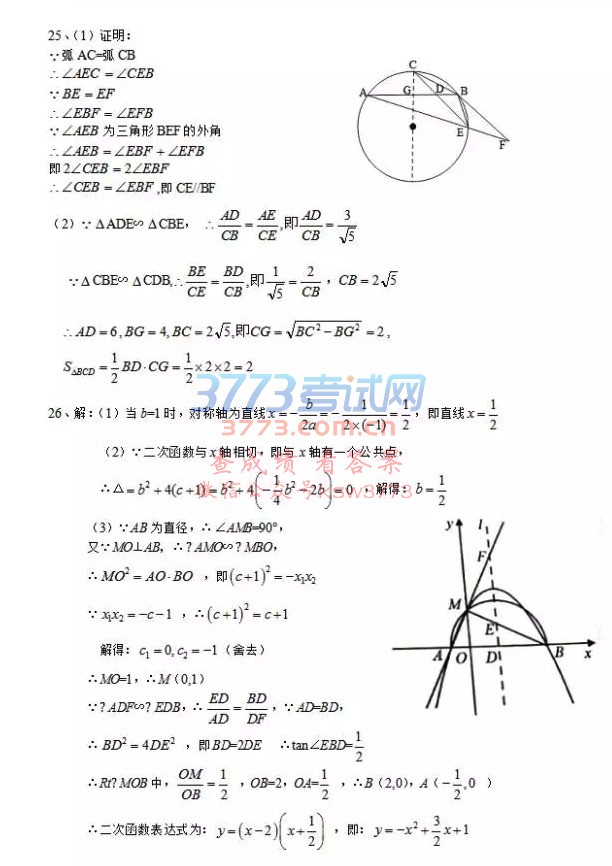 25、（1）证明：
∵弧 AC=弧 CB
∴∠AEC = ∠CEB
∵ BE = EF
∴∠EBF = ∠EFB
∵∠AEB 为三角形 BEF 的外角
∴∠AEB = ∠EBF + ∠EFB
即 2∠CEB = 2∠EBF
∴∠CEB = ∠EBF ,即 CE//BF
C
A G D B
E
F
（2）∵ ΔADE∽ ΔCBE， ∴ AD/CB = AE/CE ,即 AD/CB = 3/√5
∵ΔCBE∽ ΔCDB,∴ BE/CE = BD/CB ,即 1/√5 = 2/CB ，CB = 2√5
∴AD = 6, BG = 4, BC = 2√5,即CG = √(BC²－BG²) = 2 ,
S△BCD = 1/2 BD·CG = 1/2 ×2×2 = 2
3773考试网
26、解：（1）当 b=1 时，对称轴为直线 x = －b/2a = －1/(2×(－1)) = 1/2 ，即直线 x = 1/2
3773.com.cn
（2）∵二次函数与 x 轴相切，即与 x 轴有一个公共点，
查成绩 看答案
∴△= b² + 4(c+1) = b² + 4(－1/4 b² －2b) = 0 ，解得：b = 1/2
微信公众号ksw3773
（3）∵AB 为直径，∴∠AMB=90°，
又∵MO⊥AB，∴? AMO∽? MBO，
∴MO² = AO·BO ，即(c+1)² = －x₁x₂
∵ x₁x₂ = －c－1 ，∴(c+1)² = c+1
解得：c₁ = 0, c₂ = －1（舍去）
∴MO=1，∴M（0,1）
∵? ADF∽? EDB，∴ ED/AD = BD/DF ，∵AD=BD，
∴ BD² = 4DE² ，即BD=2DE ∴tan∠EBD= 1/2
∴Rt? MOB 中，OM/OB = 1/2 ，OB=2，OA= 1/2 ，∴B（2,0），A（－1/2 ,0 ）
∴二次函数表达式为：y = (x－2)(x + 1/2) ，即：y = －x² + 3/2 x + 1
y l
F
M
E
A O D B x